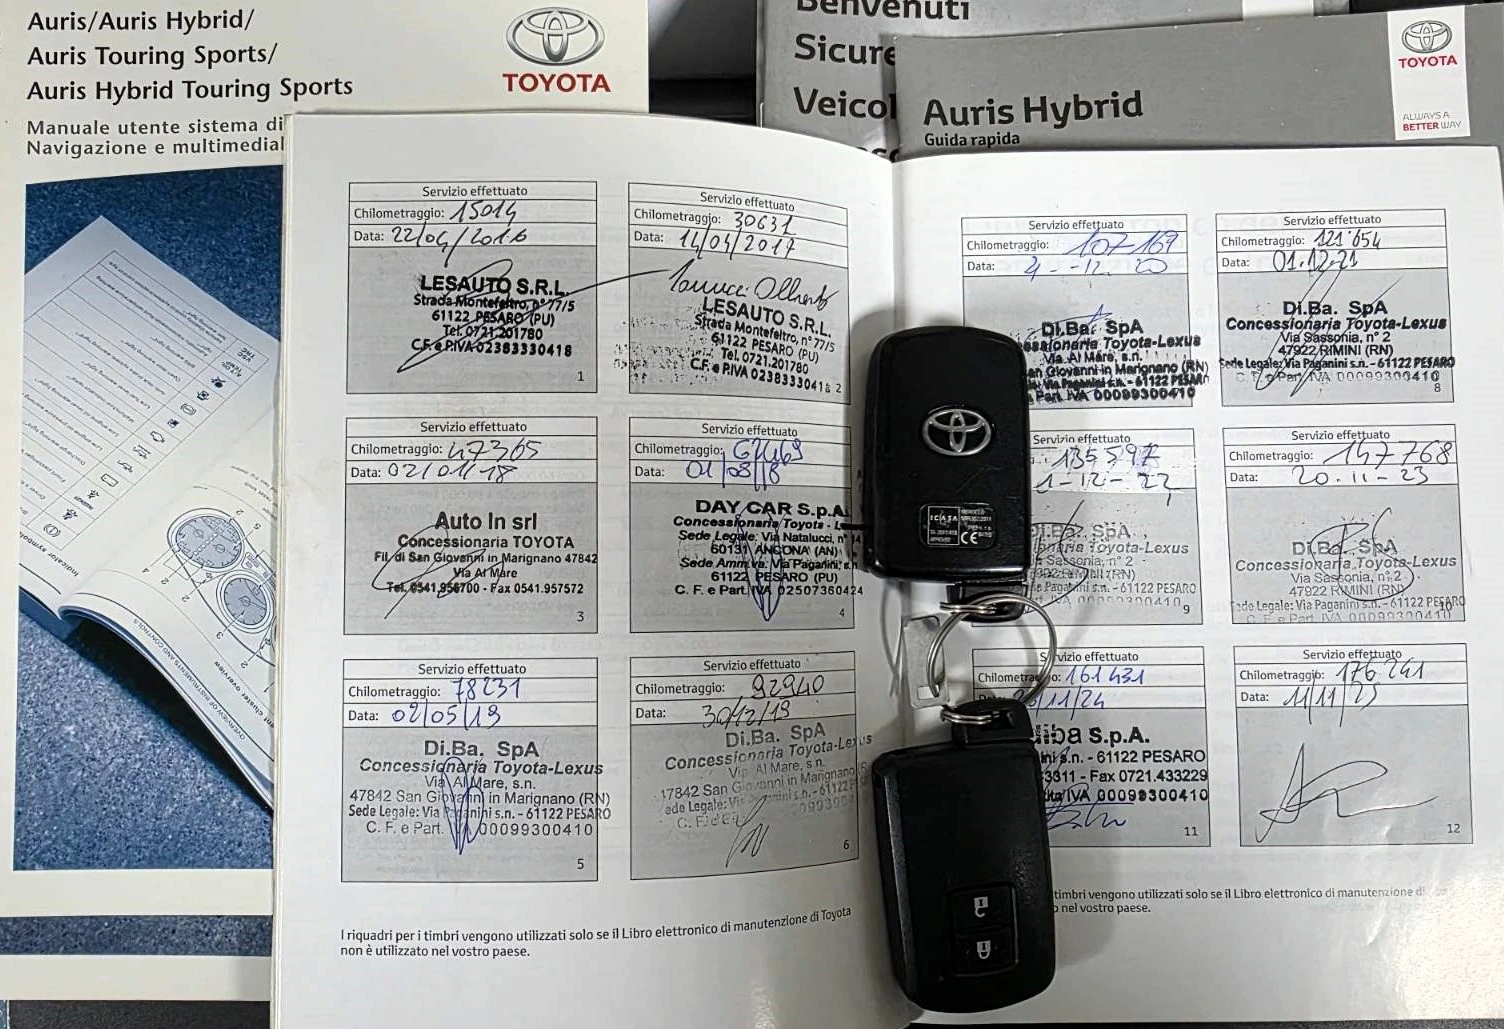 Auris/Auris Hybrid/
Auris Touring Sports/
Auris Hybrid Touring Sports
TOYOTA
Manuale utente sistema di
Navigazione e multimedial
Benvenuti
Sicure
Veicol
Auris Hybrid
Guida rapida
TOYOTA
ALWAYS A
BETTER WAY
Servizio effettuato
Chilometraggio: 15014
Data: 22/04/2016
LESAUTO S.R.L.
Strada Montefeltro, n° 77/5
61122 PESARO (PU)
Tel. 0721.201780
C.F. e P.IVA 02383330418
1
Servizio effettuato
Chilometraggio: 30631
Data: 14/04/2017
LESAUTO S.R.L.
Strada Montefeltro, n° 77/5
61122 PESARO (PU)
Tel. 0721.201780
C.F. e P.IVA 02383330418
2
Servizio effettuato
Chilometraggio: 47365
Data: 02/01/18
Auto In srl
Concessionaria TOYOTA
Fil. di San Giovanni in Marignano 47842
Via Al Mare
Tel. 0541.956700 - Fax 0541.957572
3
Servizio effettuato
Chilometraggio:
Data: 01/08/18
DAY CAR S.p.A.
Concessionaria Toyota - L
Sede Legale: Via Natalucci, n°
60131 ANCONA (AN)
Sede Amm.va: Via Paganini, s.n.
61122 PESARO (PU)
C. F. e Part. IVA 02507360424
4
Servizio effettuato
Chilometraggio: 78231
Data: 02/05/19
Di.Ba. SpA
Concessionaria Toyota-Lexus
Via Al Mare, s.n.
47842 San Giovanni in Marignano (RN)
Sede Legale: Via Paganini s.n. - 61122 PESARO
C. F. e Part. IVA 00099300410
5
Servizio effettuato
Chilometraggio: 92940
Data: 30/12/19
Di.Ba. SpA
Concessionaria Toyota-Lexus
Via Al Mare, s.n.
47842 San Giovanni in Marignano
ede Legale: Via
6
Servizio effettuato
Chilometraggio: 107169
Data: 4--12. 20
Di.Ba. SpA
essionaria Toyota-Lexus
Via Al Mare, s.n.
an Giovanni in Marignano (RN)
Via Paganini s.n. - 61122 PESARO
Part. IVA 00099300410
Servizio effettuato
Chilometraggio: 121'654
Data: 01.12.21
Di.Ba. SpA
Concessionaria Toyota-Lexus
Via Sassonia, n° 2
47922 RIMINI (RN)
Sede Legale: Via Paganini s.n. - 61122 PESARO
C. F. e Part. IVA 00099300410
8
Servizio effettuato
135597
1-12-22
SpA
ionaria Toyota-Lexus
Sassonia, n° 2
RIMINI (RN)
Paganini s.n. - 61122 PESARO
IVA 00099300410
9
Servizio effettuato
Chilometraggio: 147768
Data: 20.11-23
Di.Ba. SpA
Concessionaria Toyota-Lexus
Via Sassonia, n° 2
47922 RIMINI (RN)
Sede Legale: Via Paganini s.n. - 61122 PESARO
C. F. e Part. IVA 00099300410
10
Servizio effettuato
161431
/11/24
iba S.p.A.
ni s.n. - 61122 PESARO
3311 - Fax 0721.433229
IVA 00099300410
11
Servizio effettuato
Chilometraggio: 176241
Data: 11/11/25
12
I riquadri per i timbri vengono utilizzati solo se il Libro elettronico di manutenzione di Toyota
non è utilizzato nel vostro paese.
timbri vengono utilizzati solo se il Libro elettronico di manutenzione di
nel vostro paese.
ICASA
CE
Indicator symbols
OVERVIEW OF INSTRUMENTS AND CONTROLS